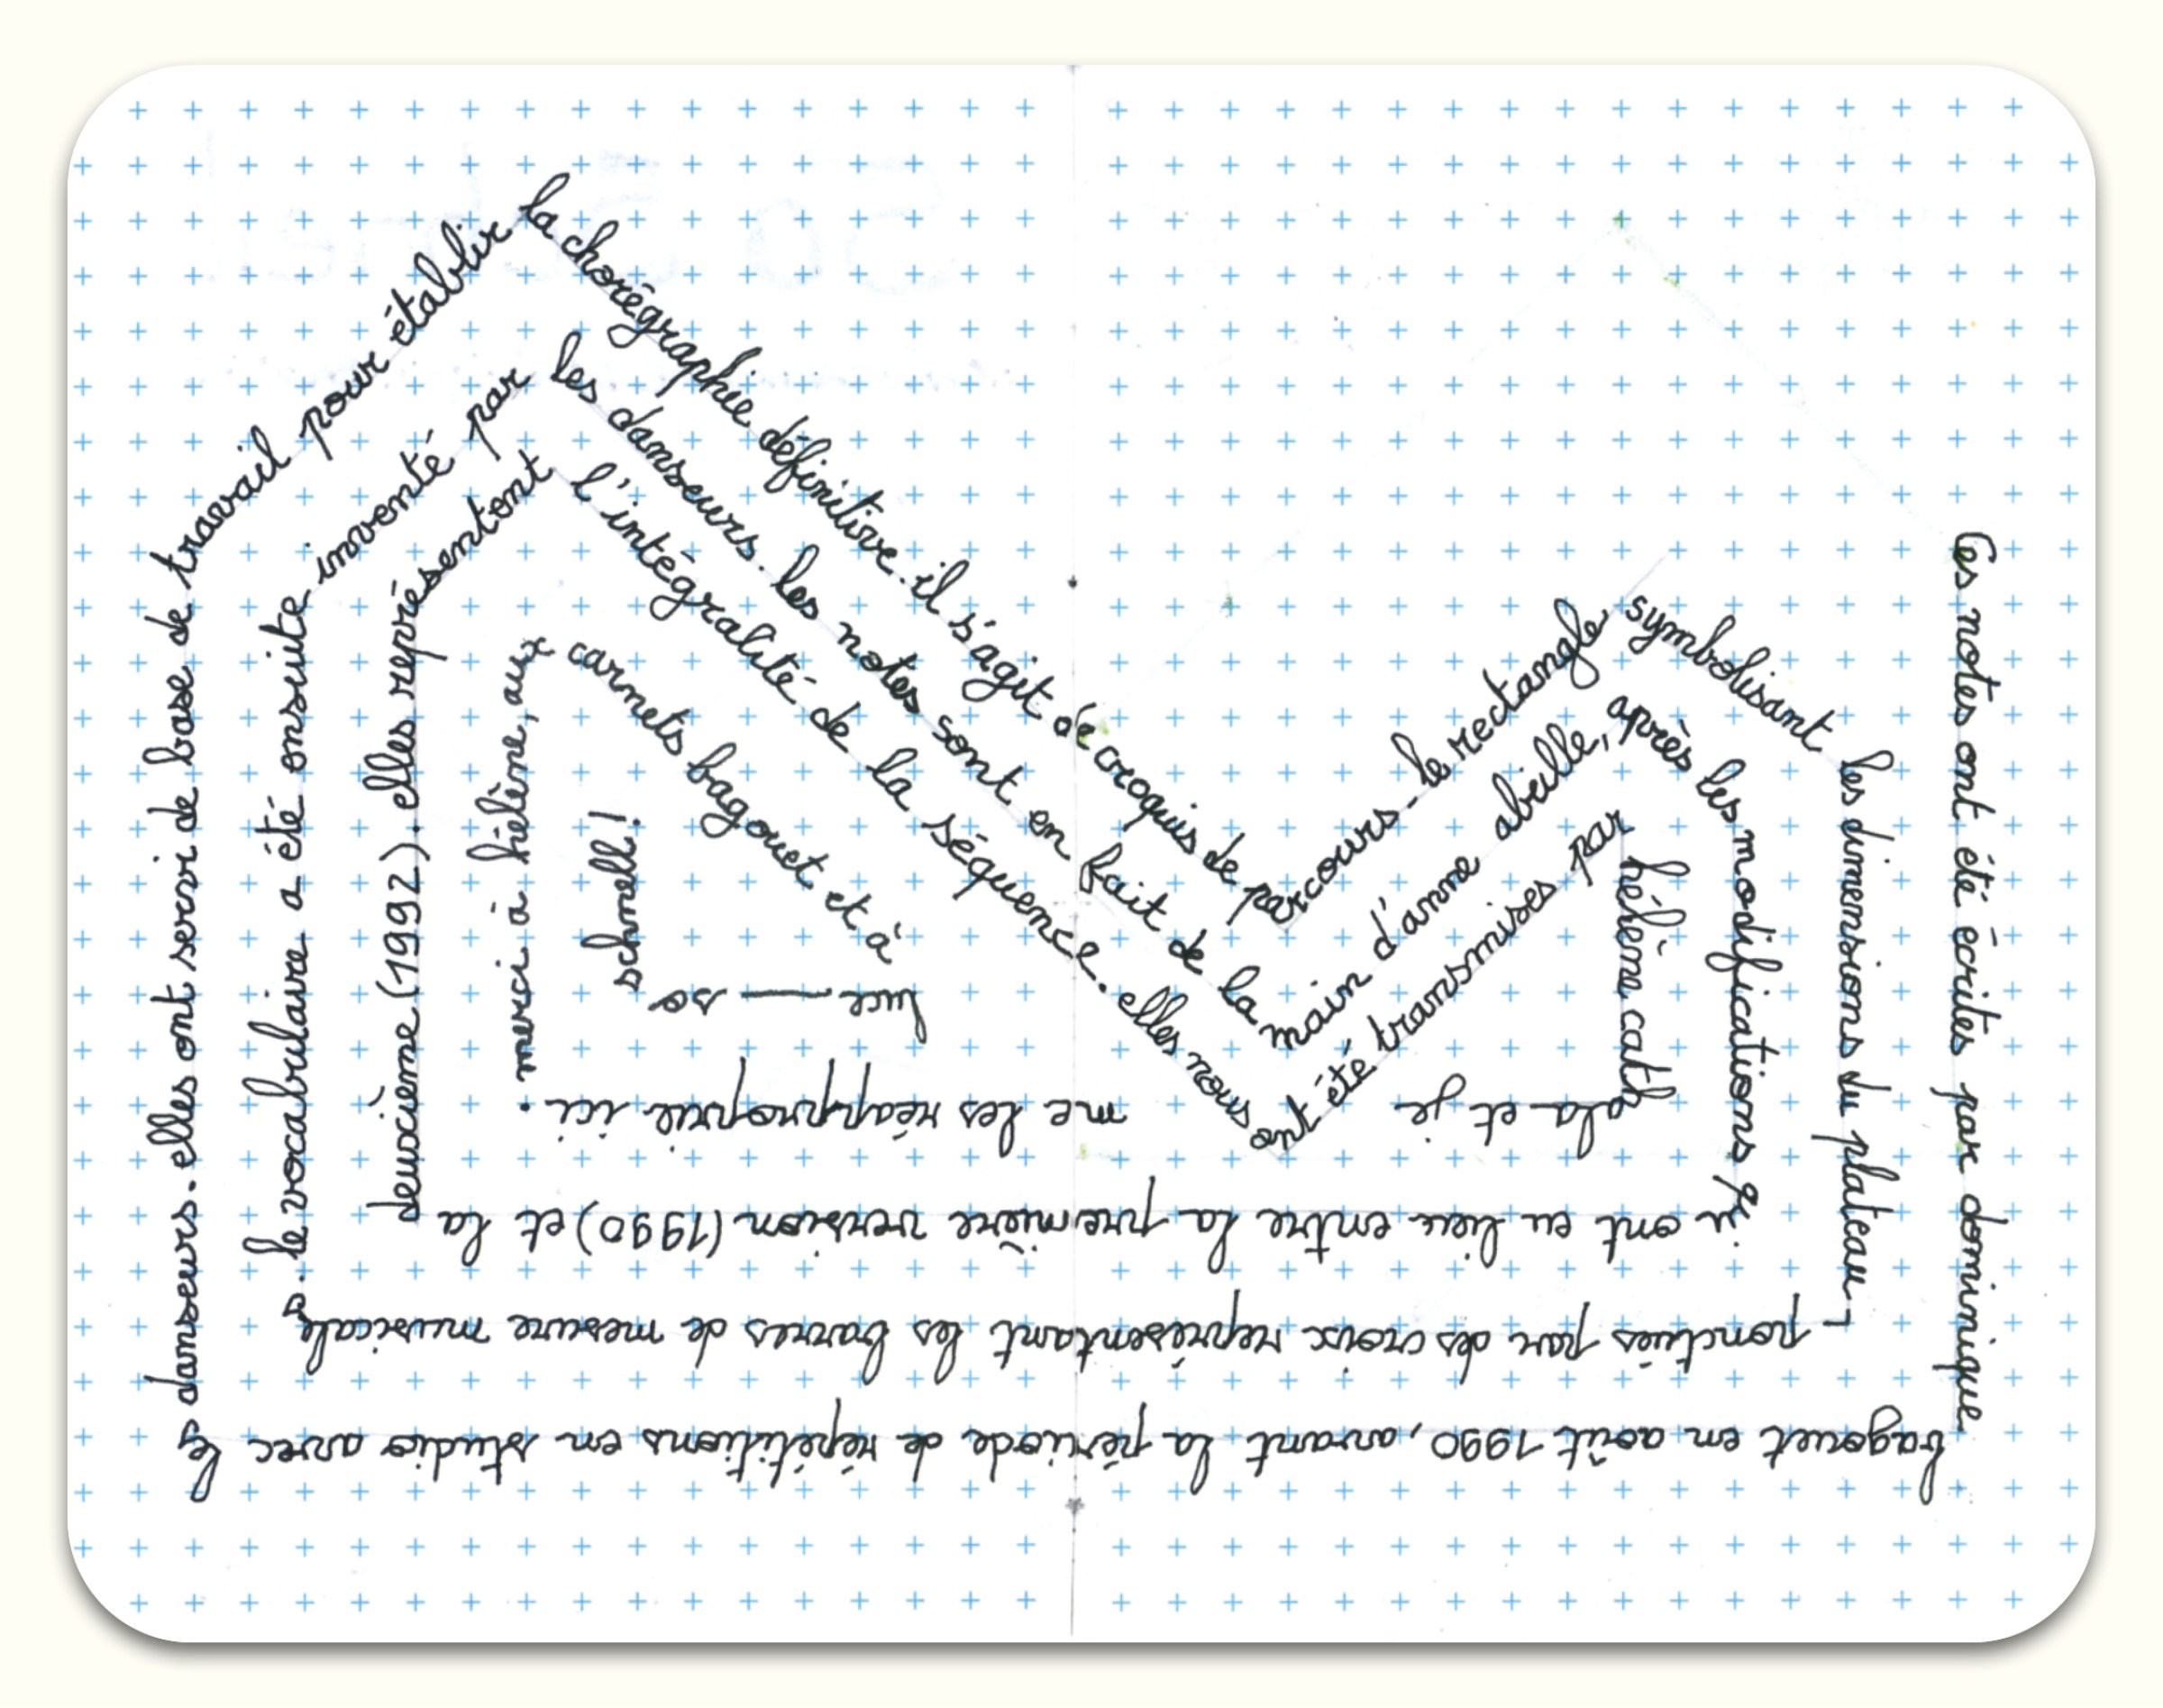 Ces notes ont été écrites par dominique
bagouet en août 1990, avant la période de répétitions en studio avec les
danseurs. elles ont servi de base de
travail pour établir
la chorégraphie définitive. il s'agit de croquis de parcours
- le rectangle
symbolisant
les dimensions du plateau -
ponctués par des croix représentant les barres de mesure musicale
s. le vocabulaire a été ensuite
inventé par
les danseurs. les notes sont en fait de la
main d'anne abeille,
après les
modifications qu
i ont eu lieu entre la première version (1990) et la
deuxième (1992). elles repré
sentent
l'intégralité de la séquence. elles nous
ont été transmises par
hélène cath
ala et je
me les réapproprie ici.
merci à hélène, aux
carnets bagouet et à
luce — so
schnell!